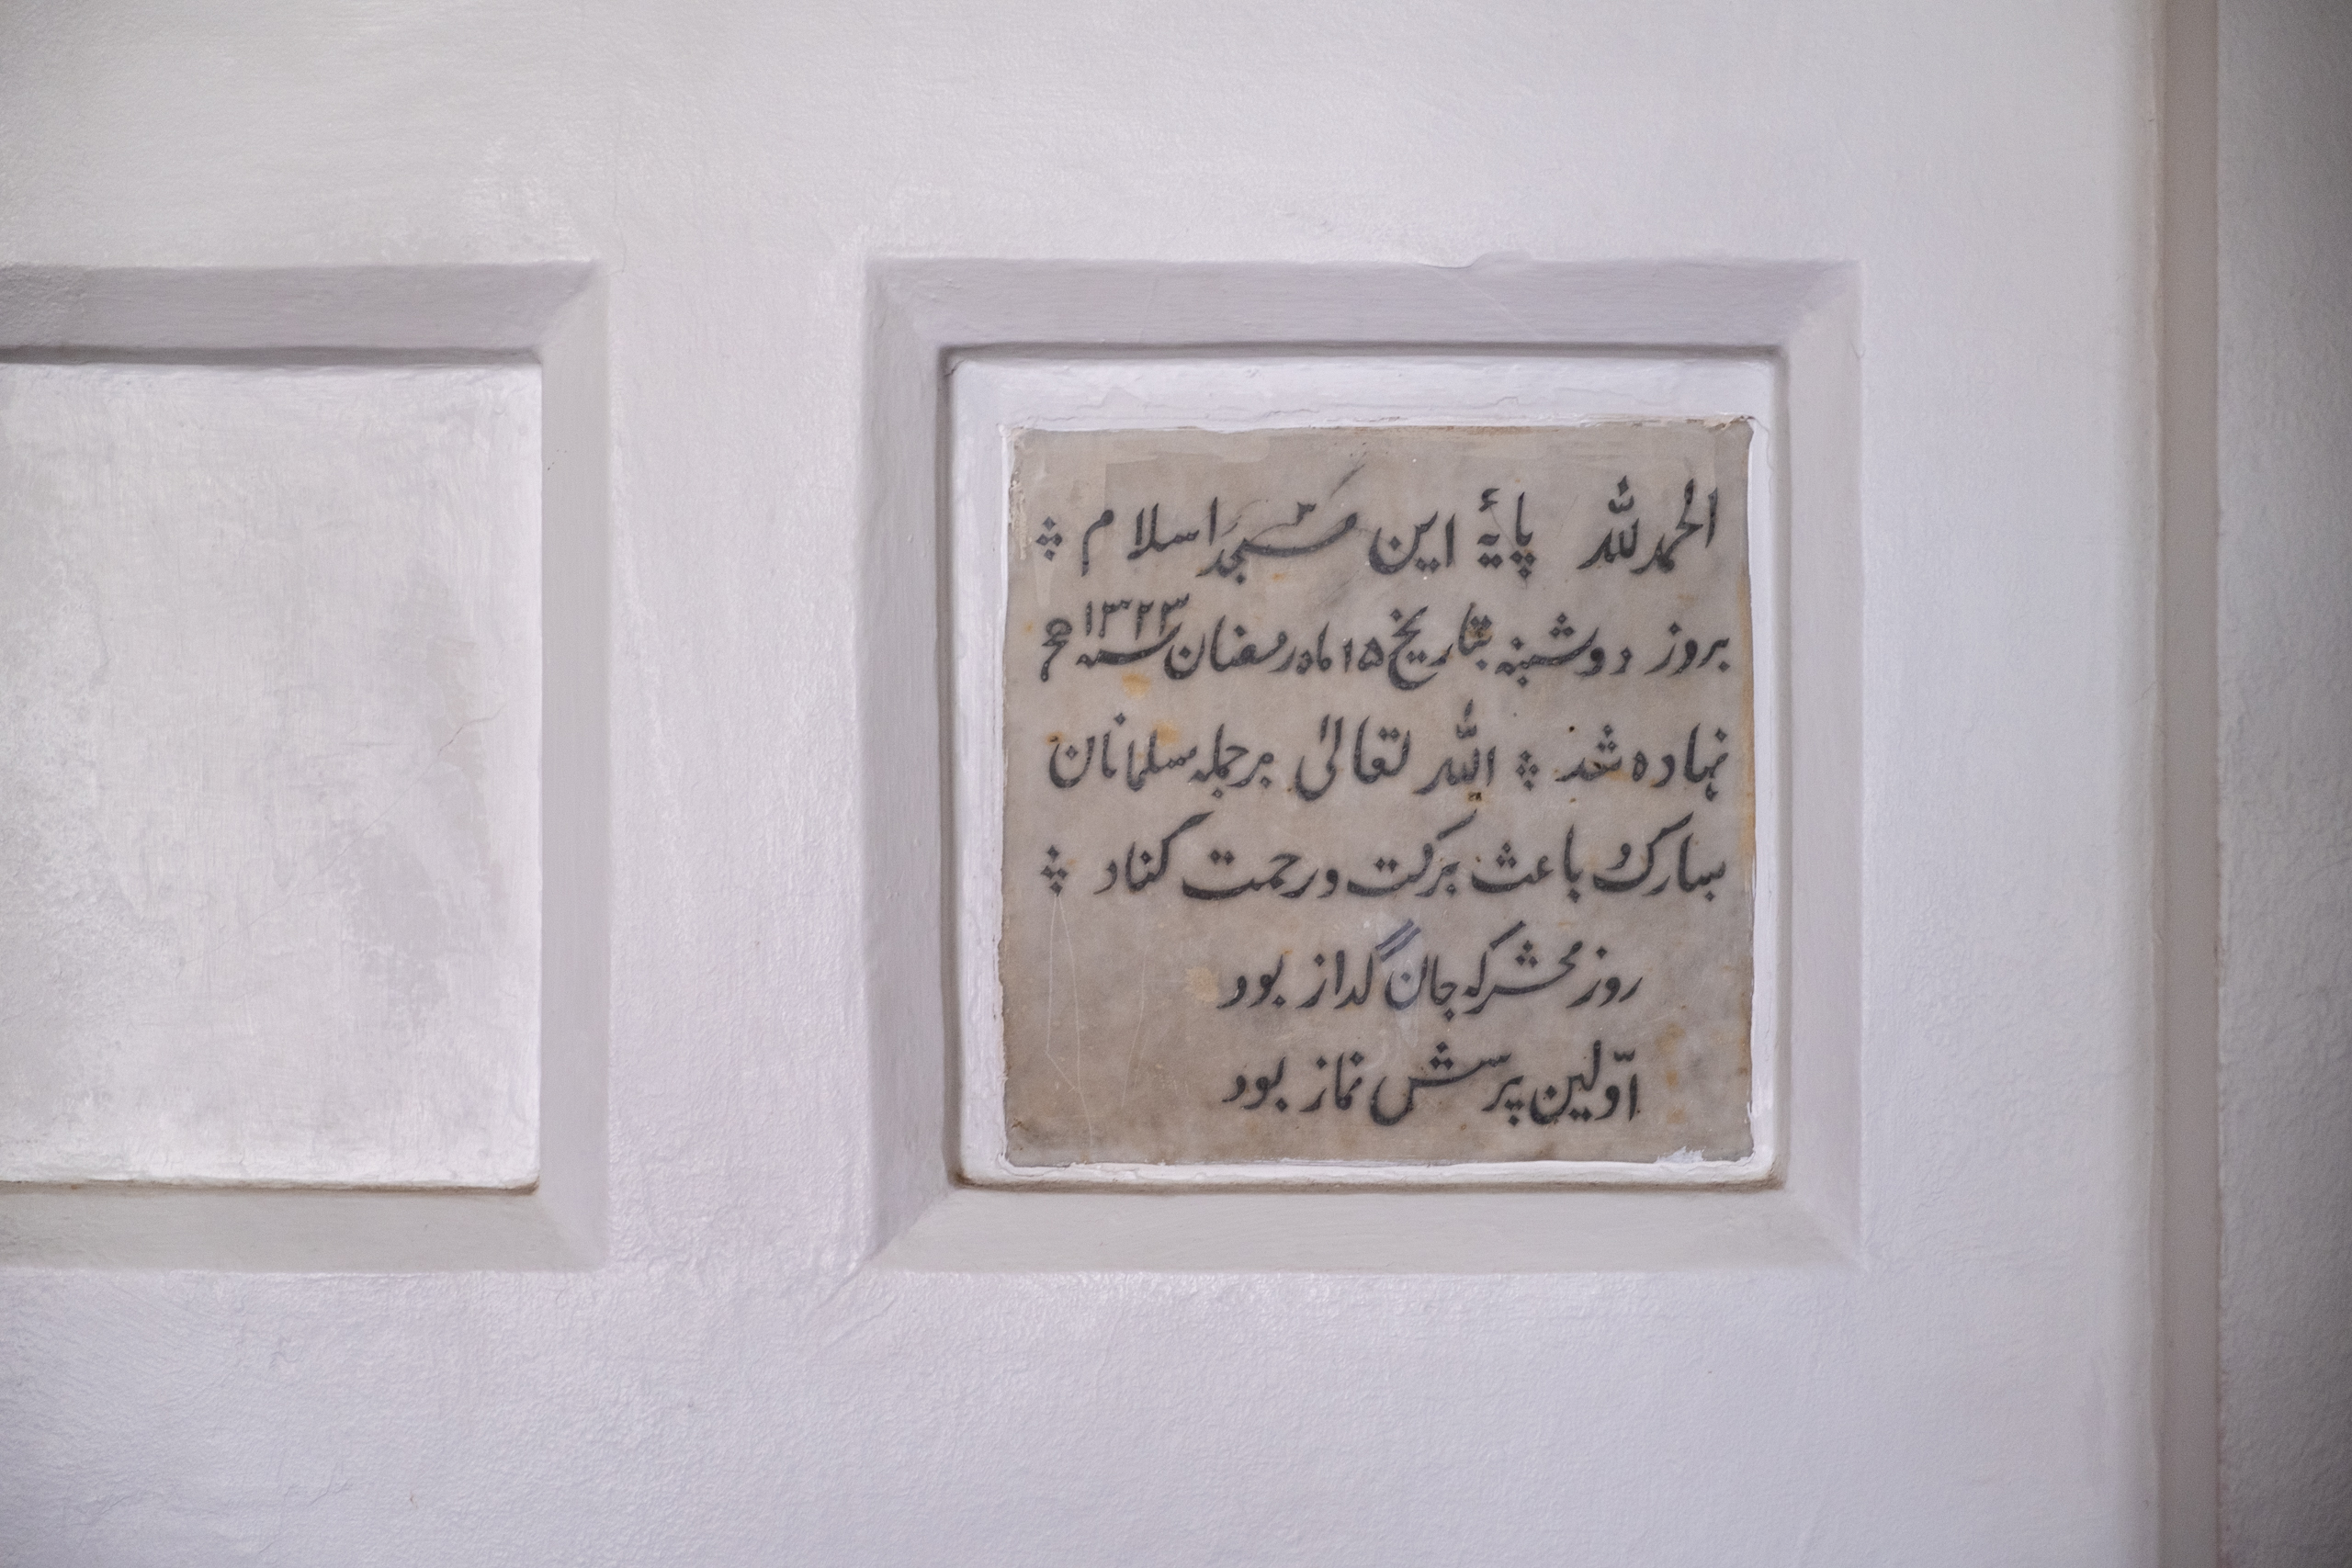 الحمدللہ پایۂ این مسجد اسلام
بروز دوشنبہ بتاریخ ۱۵ ماہ رمضان سنہ ۱۳۲۳ ھج
نہادہ شد اللہ تعالیٰ برجملہ مسلمانان
مبارک و باعث برکت و رحمت کناد
روز محشر کہ جان گداز بود
اوّلین پرسش نماز بود